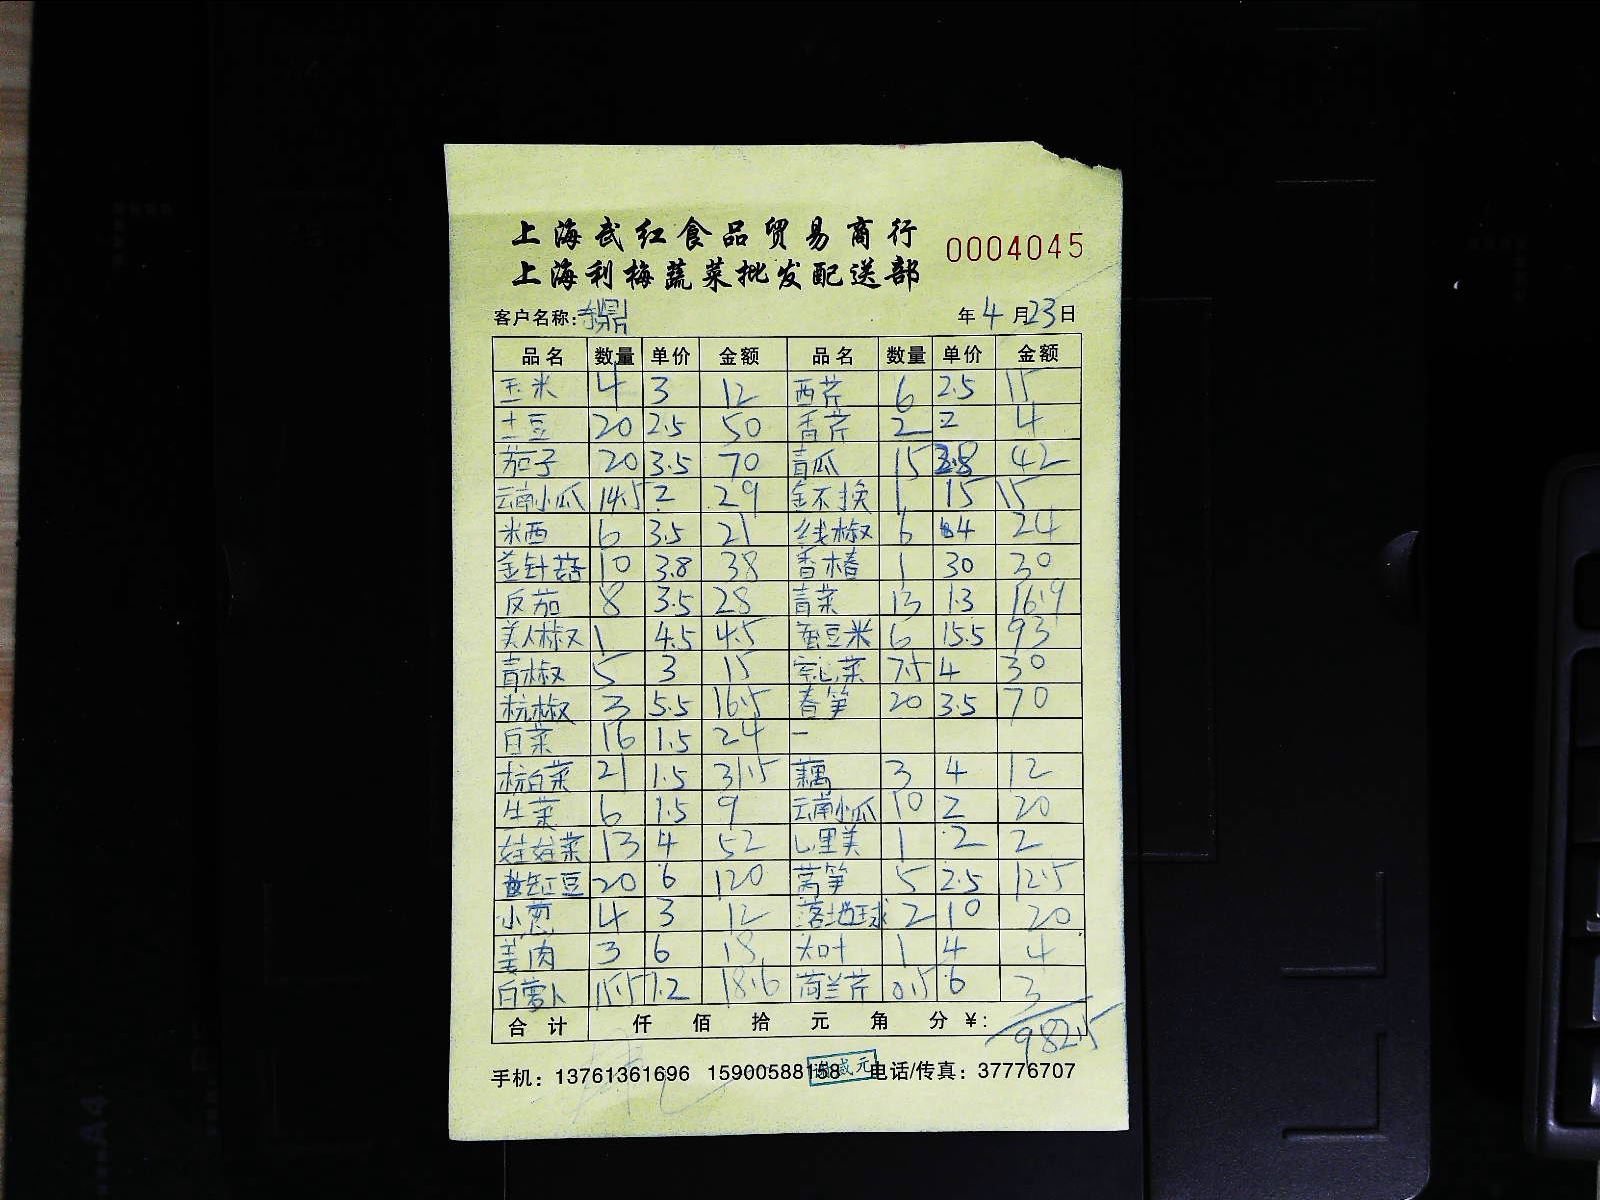 上海武红食品贸易商行
0004045
上海利梅蔬菜批发配送部
客户名称: 鼎 年4月23日
品名 数量 单价 金额 品名 数量 单价 金额
玉米 4 3 12 西芹 6 2.5 15
土豆 20 2.5 50 香芹 2 2 4
茄子 20 3.5 70 青瓜 15 2.8 42
云南小瓜 14.5 2 29 金不换 1 15 15
米西 6 3.5 21 线椒 6 4 24
金针菇 10 3.8 38 香椿 1 30 30
反茄 8 3.5 28 青菜 13 1.3 16.9
美人椒 1 4.5 4.5 蚕豆米 6 15.5 93
青椒 5 3 15 空心菜 7.5 4 30
杭椒 3 5.5 16.5 春笋 20 3.5 70
白菜 16 1.5 24 一
杭白菜 21 1.5 31.5 藕 3 4 12
生菜 6 1.5 9 云南小瓜 10 2 20
娃娃菜 13 4 52 心里美 1 2 2
豇豆 20 6 120 莴笋 5 2.5 12.5
小葱 4 3 12 落地球 2 10 20
姜肉 3 6 18 大叶 1 4 4
白萝卜 15.5 1.2 18.6 荷兰芹 0.5 6 3
合计 仟 佰 拾 元 角 分 ¥: 982.5
手机: 13761361696 15900588158 电话/传真: 37776707